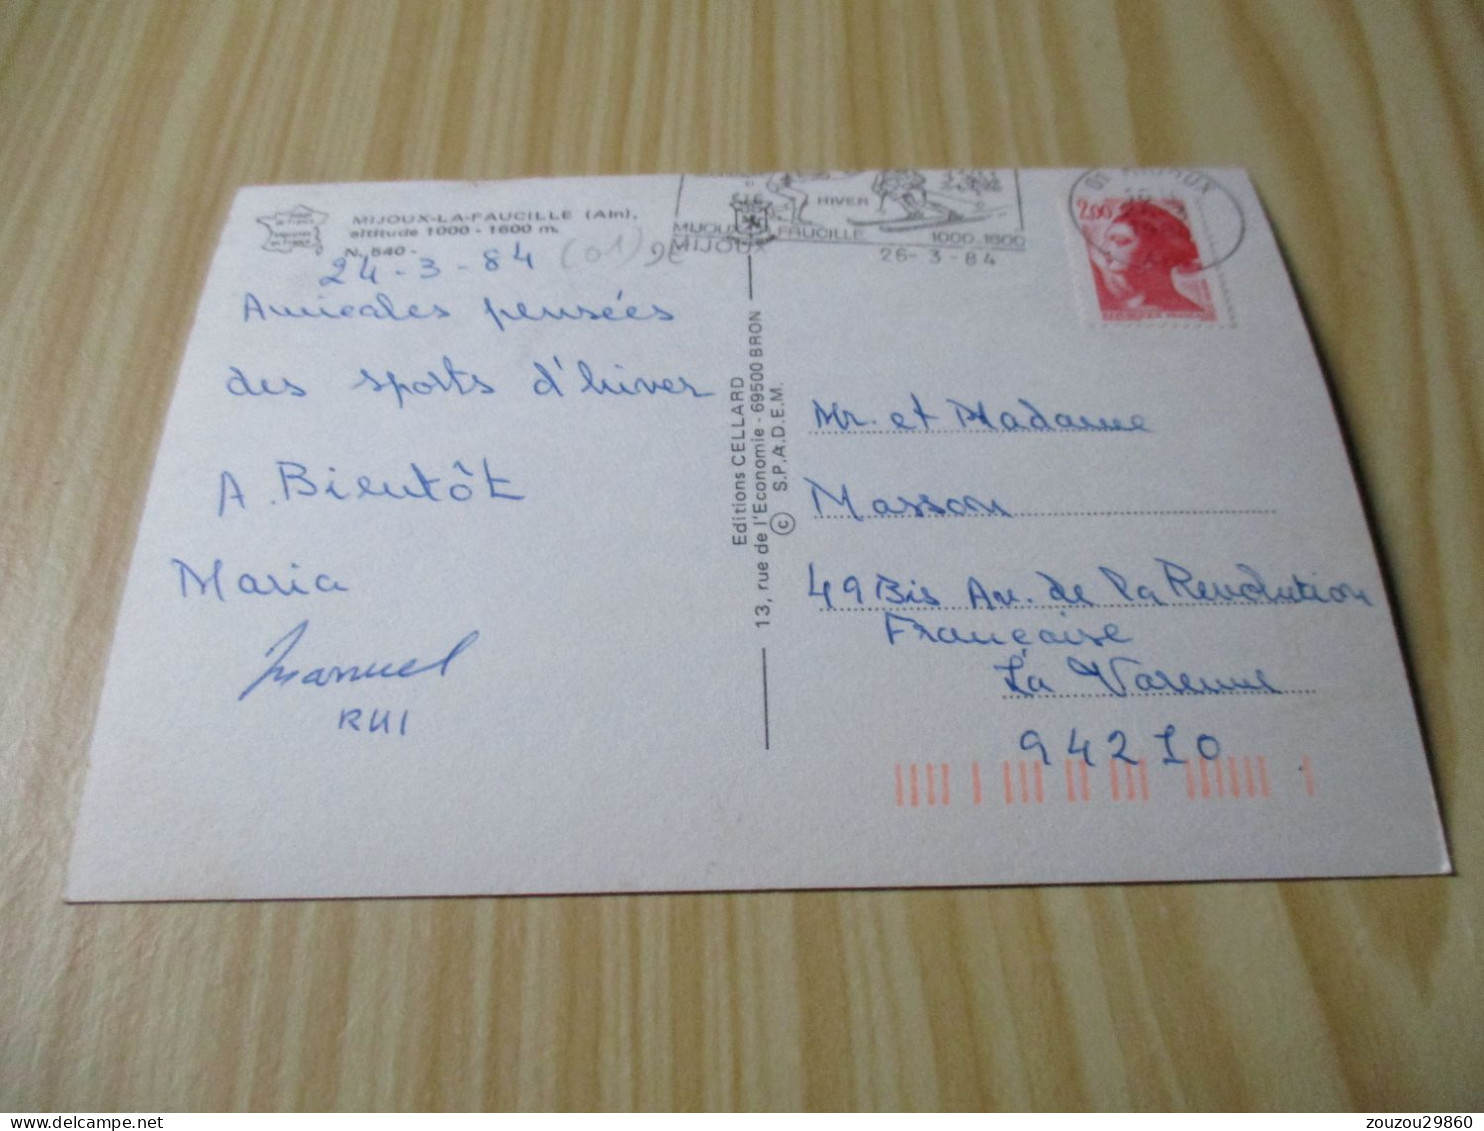 MIJOUX-LA-FAUCILLE (Ain).
altitude 1000 - 1600 m.
N. 540 -
24-3-84 (01)
Amicales pensées
des sports d'hiver
A Bientôt
Maria
Manuel
RUI
Editions CELLARD
13, rue de l'Economie - 69500 BRON
© S.P.A.D.E.M.
ÉTÉ HIVER
MIJOUX FAUCILLE 1000-1600
MIJOUX 26-3-84
01 MIJOUX
2,00
Mr. et Madame
Masson
49 Bis Av. de la Revolution
Française
La Varenne
94210
zouzou29860
delcampe.net